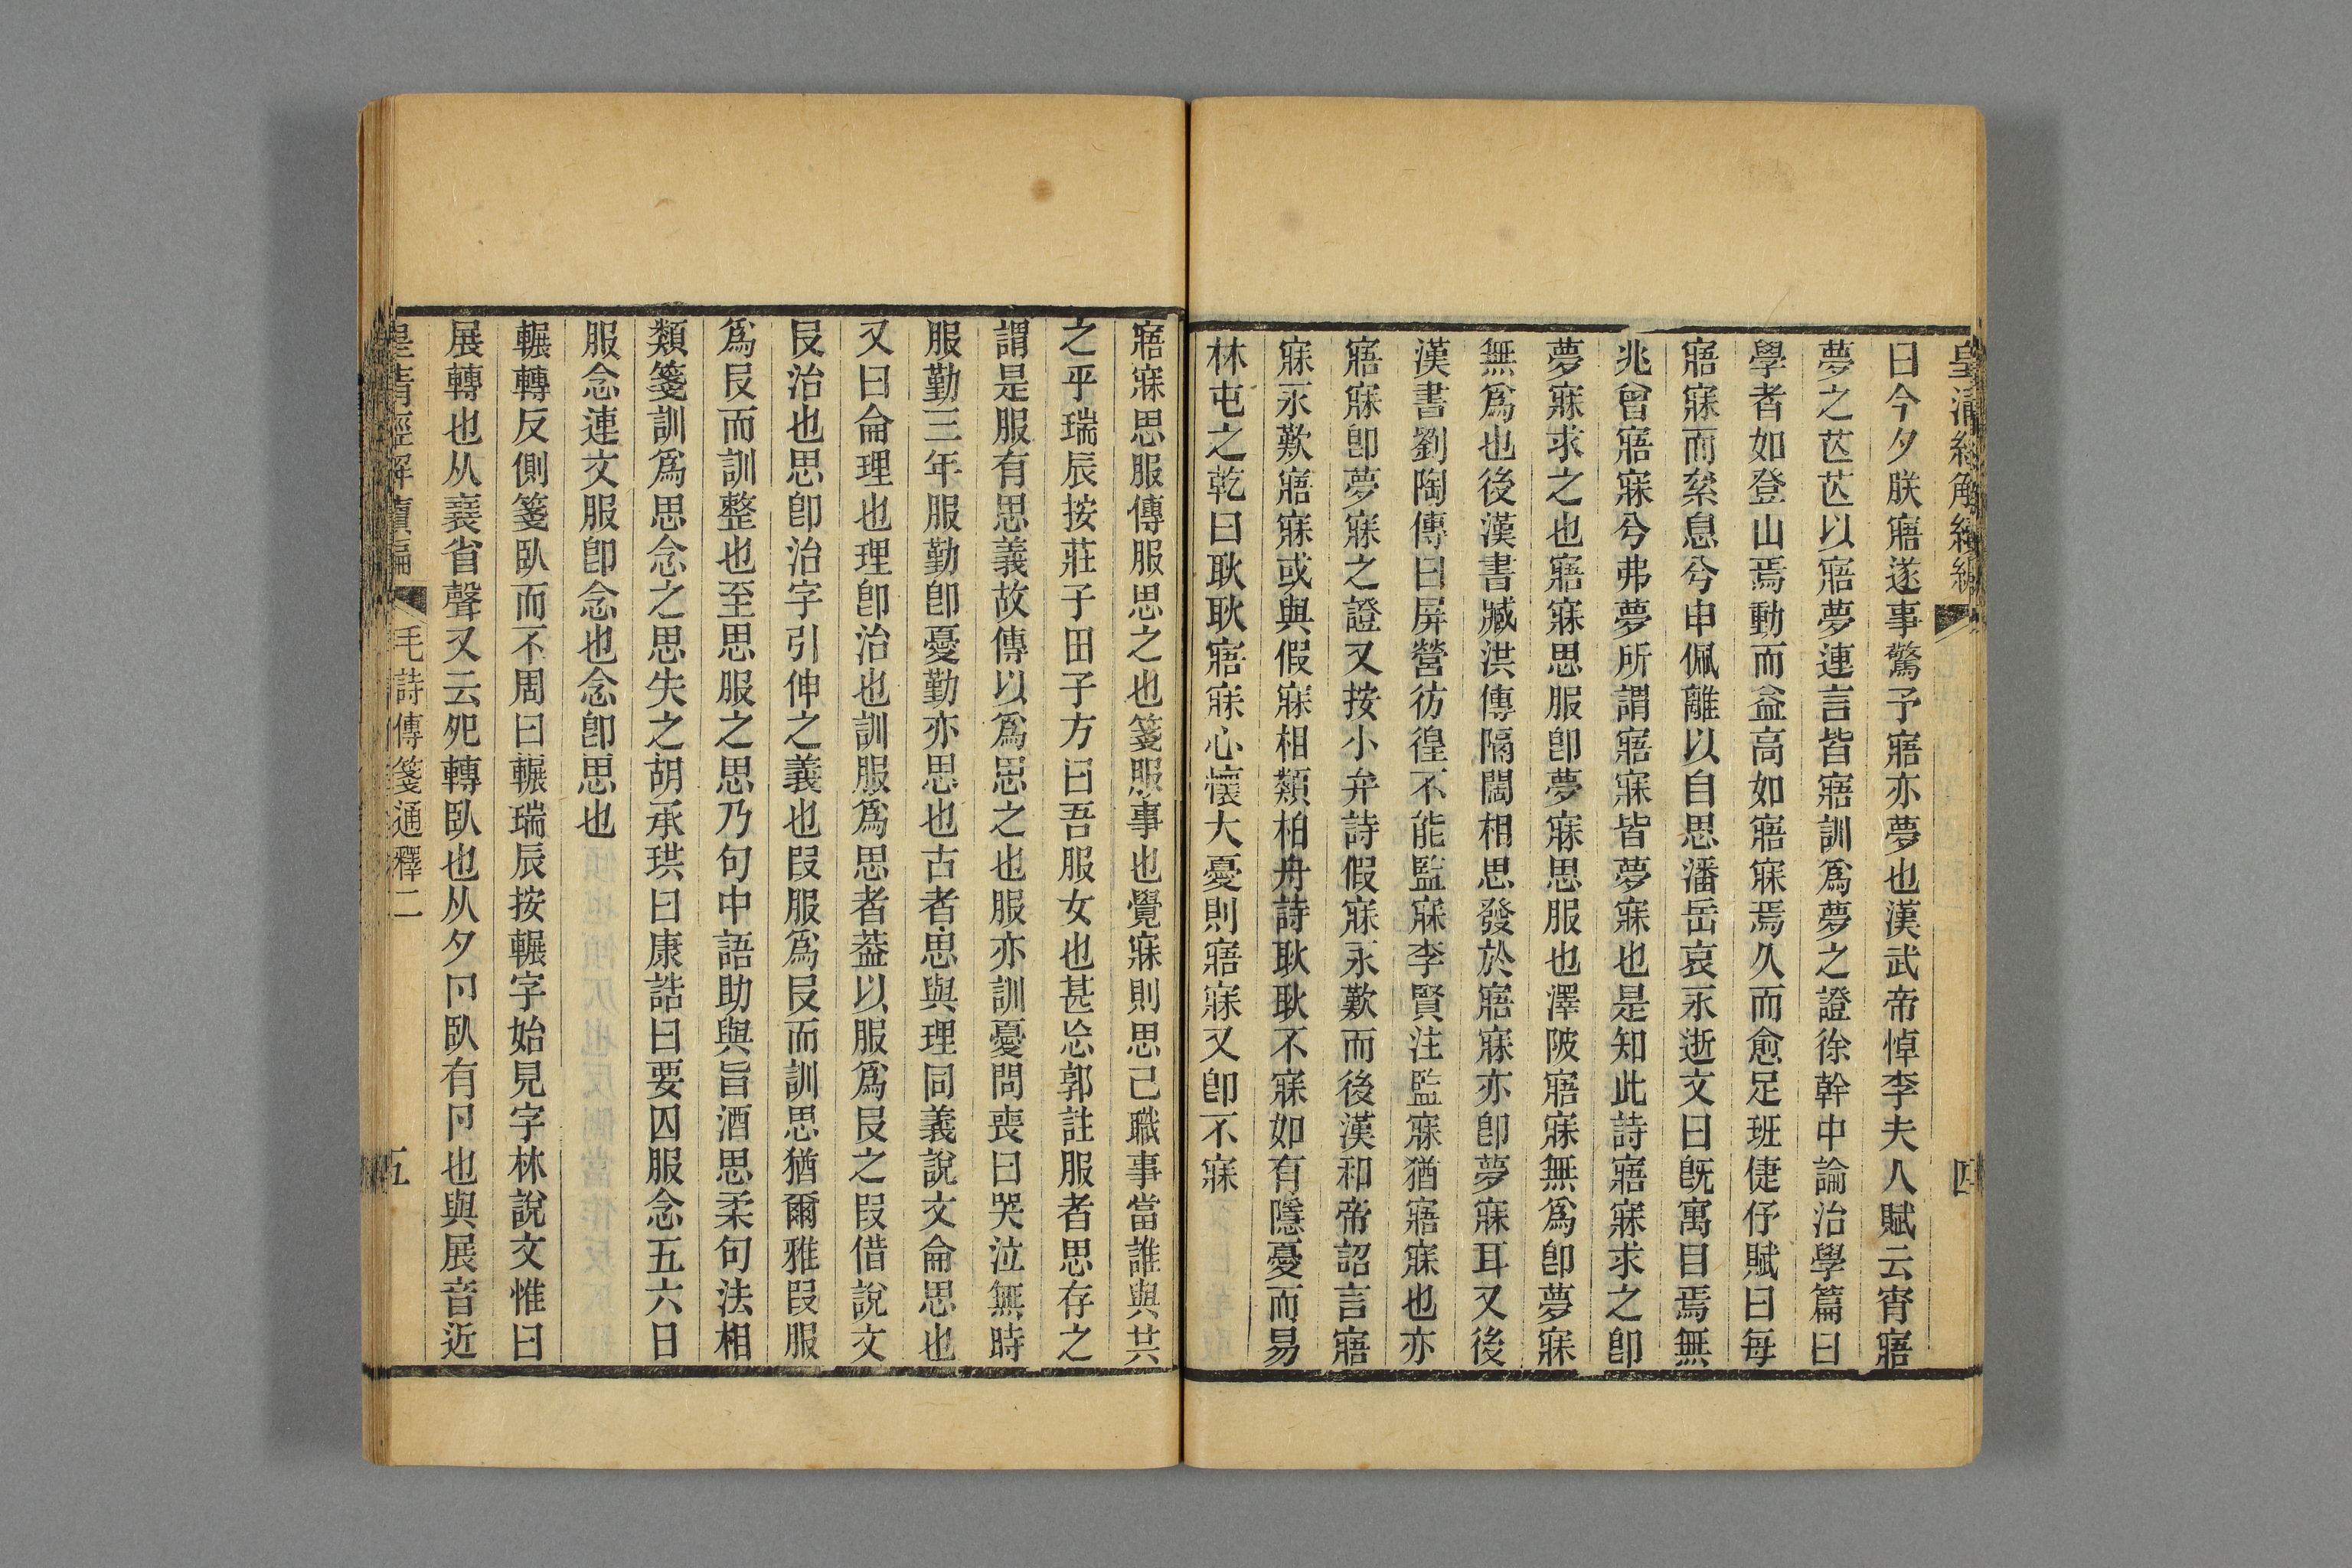 皇清經解續編 四
曰今夕朕寤遂事驚予寤亦夢也漢武帝悼李夫人賦云宵寤
夢之芒芒以寤夢連言皆寤訓爲夢之證徐幹中論治學篇曰
學者如登山焉動而益高如寤寐焉久而愈足班倢伃賦曰每
寤寐而絫息兮申佩離以自思潘岳哀永逝文曰旣寓目焉無
兆曾寤寐兮弗夢所謂寤寐皆夢寐也是知此詩寤寐求之卽
夢寐求之也寤寐思服卽夢寐思服也澤陂寤寐無爲卽夢寐
無爲也後漢書臧洪傳隔闊相思發於寤寐亦卽夢寐耳又後
漢書劉陶傳曰屏營彷徨不能監寐李賢注監寐猶寤寐也亦
寤寐卽夢寐之證又按小弁詩假寐永歎而後漢和帝詔言寤
寐永歎寤寐或與假寐相類柏舟詩耿耿不寐如有隱憂而易
林屯之乾曰耿耿寤寐心懷大憂則寤寐又卽不寐
寤寐思服傳服思之也箋服事也覺寐則思己職事當誰與共
之乎瑞辰按莊子田子方曰吾服女也甚忘郭註服者思存之
謂是服有思義故傳以爲思之也服亦訓憂問喪曰哭泣無時
服勤三年服勤卽憂勤亦思也古者思與理同義說文侖思也
又曰侖理也理卽治也訓服爲思者葢以服爲𠬝之叚借說文
𠬝治也思卽治字引伸之義也叚服爲𠬝而訓思猶爾雅叚服
爲𠬝而訓整也至思服之思乃句中語助與旨酒思柔句法相
類箋訓爲思念之思失之胡承珙曰康誥曰要囚服念五六日
服念連文服卽念也念卽思也
輾轉反側箋臥而不周曰輾瑞辰按輾字始見字林說文惟曰
展轉也从㠭省聲又云夗轉臥也从夕卪臥有卪也與展音近
皇清經解續編 毛詩傳箋通釋二 五